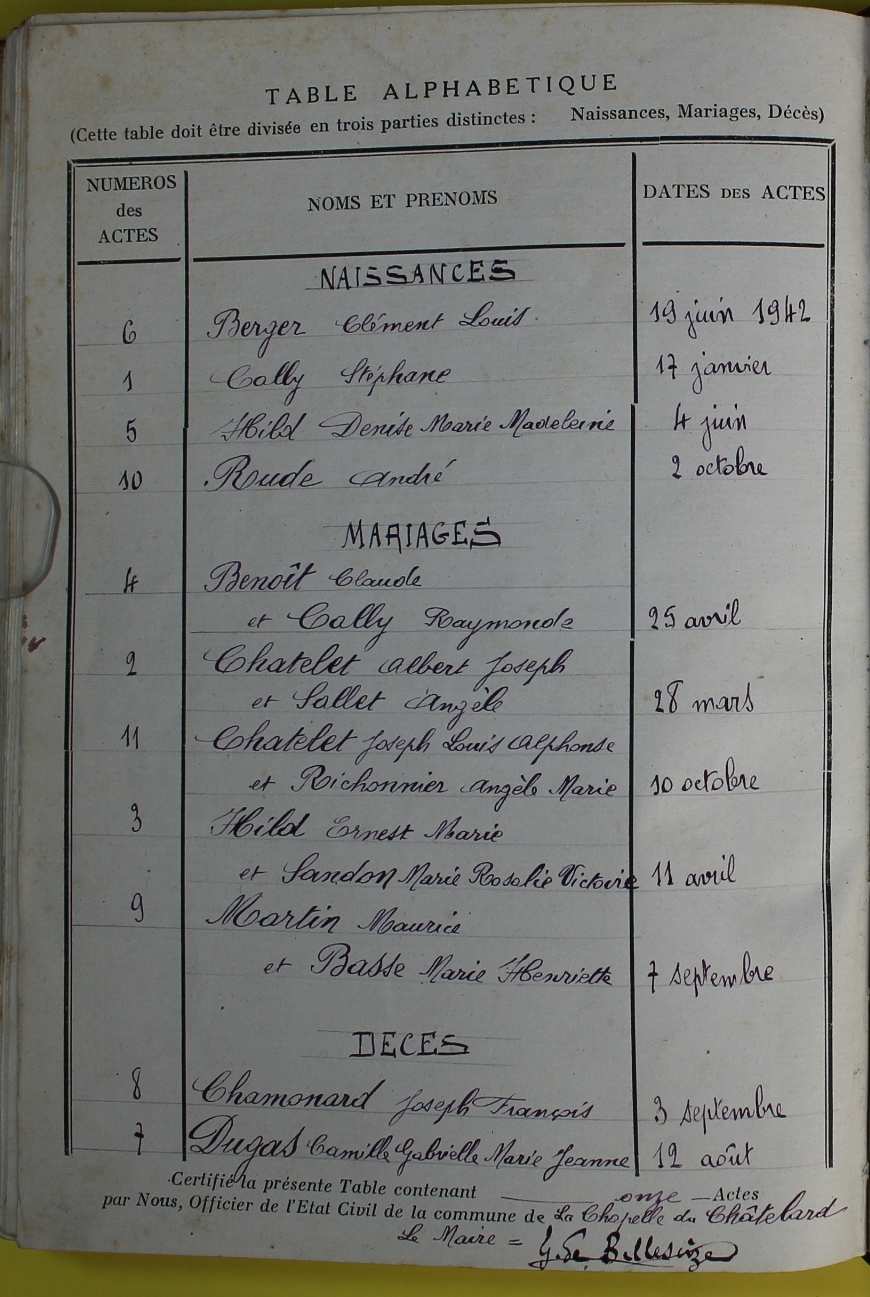 TABLE ALPHABETIQUE
(Cette table doit être divisée en trois parties distinctes : Naissances, Mariages, Décès)
NUMEROS des ACTES NOMS ET PRENOMS DATES DES ACTES
NAISSANCES
6 Berger Clément Louis 19 juin 1942
1 Cally Stéphane 17 janvier
5 Hild Denise Marie Madeleine 4 juin
10 Rude André 2 octobre
MARIAGES
4 Benoît Claude
et Cally Raymonde 25 avril
2 Chatelet Albert Joseph
et Sallet Angèle 28 mars
11 Chatelet Joseph Louis Alphonse
et Richonnier Angèle Marie 10 octobre
3 Hild Ernest Marie
et Sandon Marie Rosalie Victoire 11 avril
9 Martin Maurice
et Basse Marie Henriette 7 septembre
DECES
8 Chamonard Joseph François 3 septembre
7 Dugas Camille Gabrielle Marie Jeanne 12 août
Certifié la présente Table contenant onze Actes
par Nous, Officier de l'Etat Civil de la commune de La Chapelle du Châtelard
Le Maire =